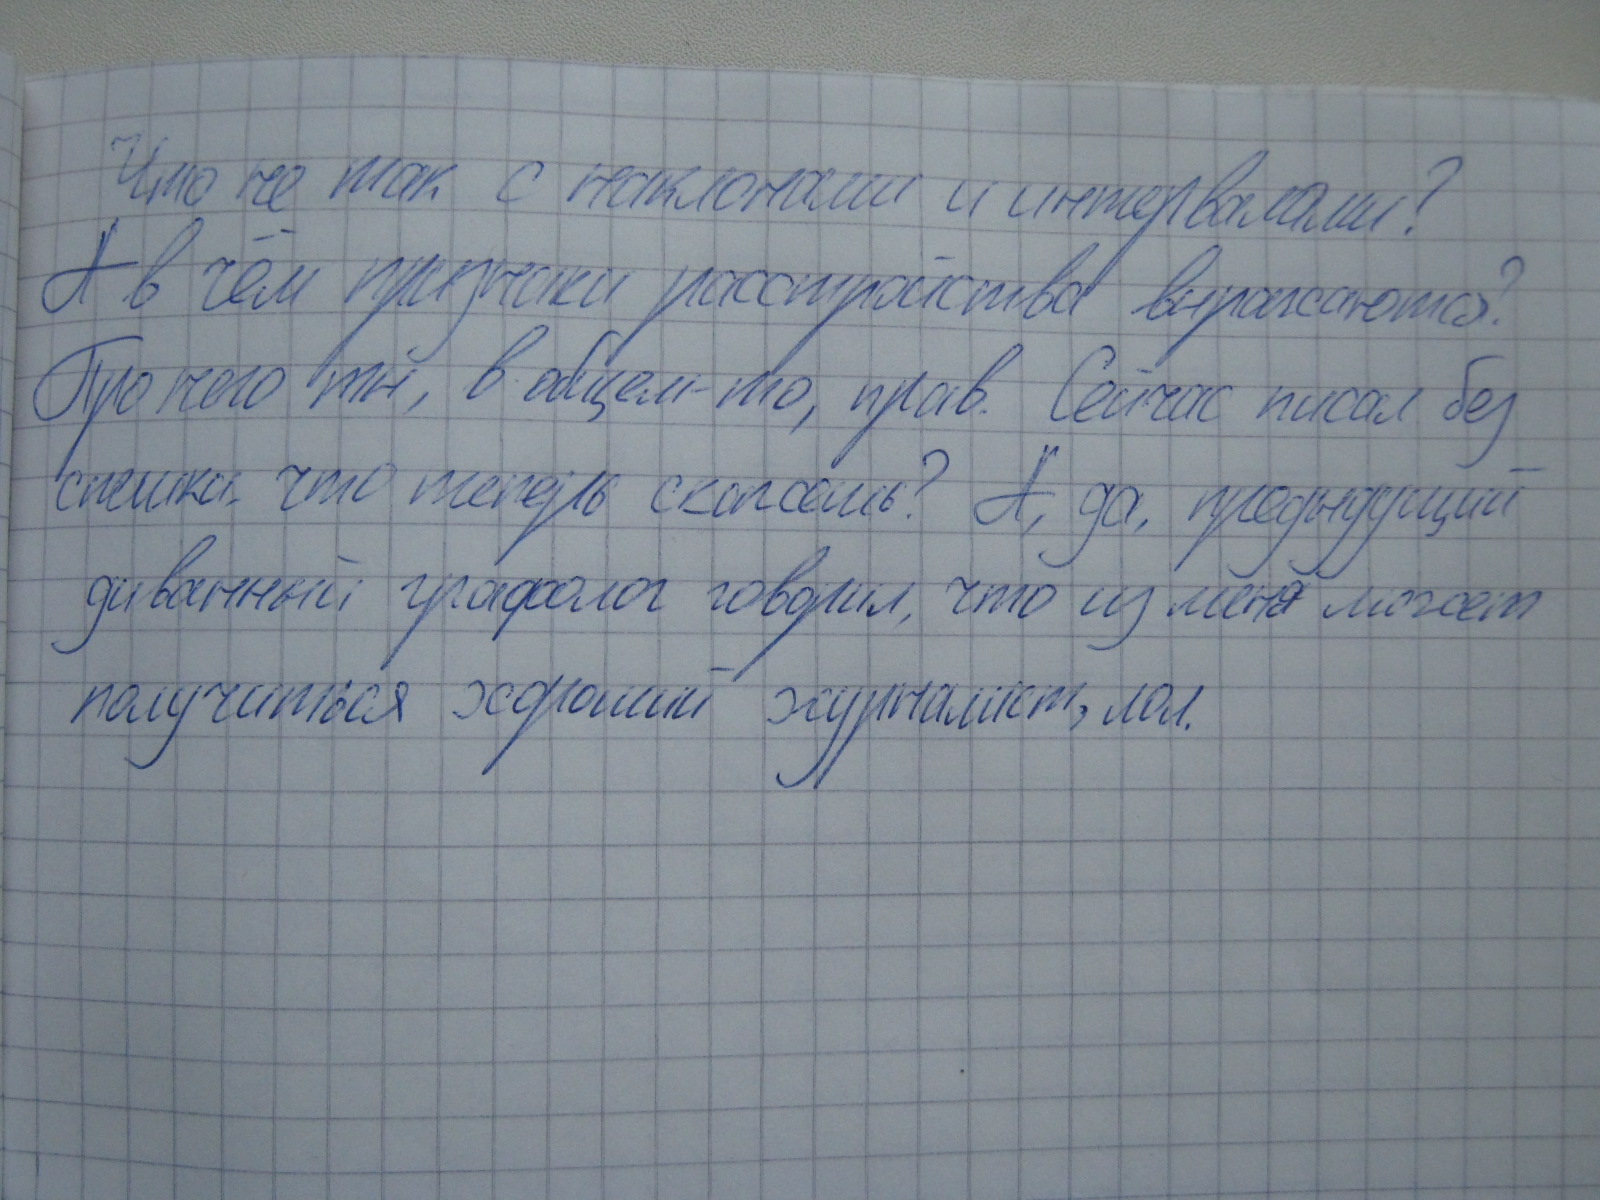 Что не так с наклонами и интервалами?
А в чём признаки расстройства выражаются?
Про него ты, в общем-то, прав. Сейчас писал без
спешки. что теперь скажешь? А, да, предыдущий
диванный графолог говорил, что из меня может
получиться хороший журналист, лол.